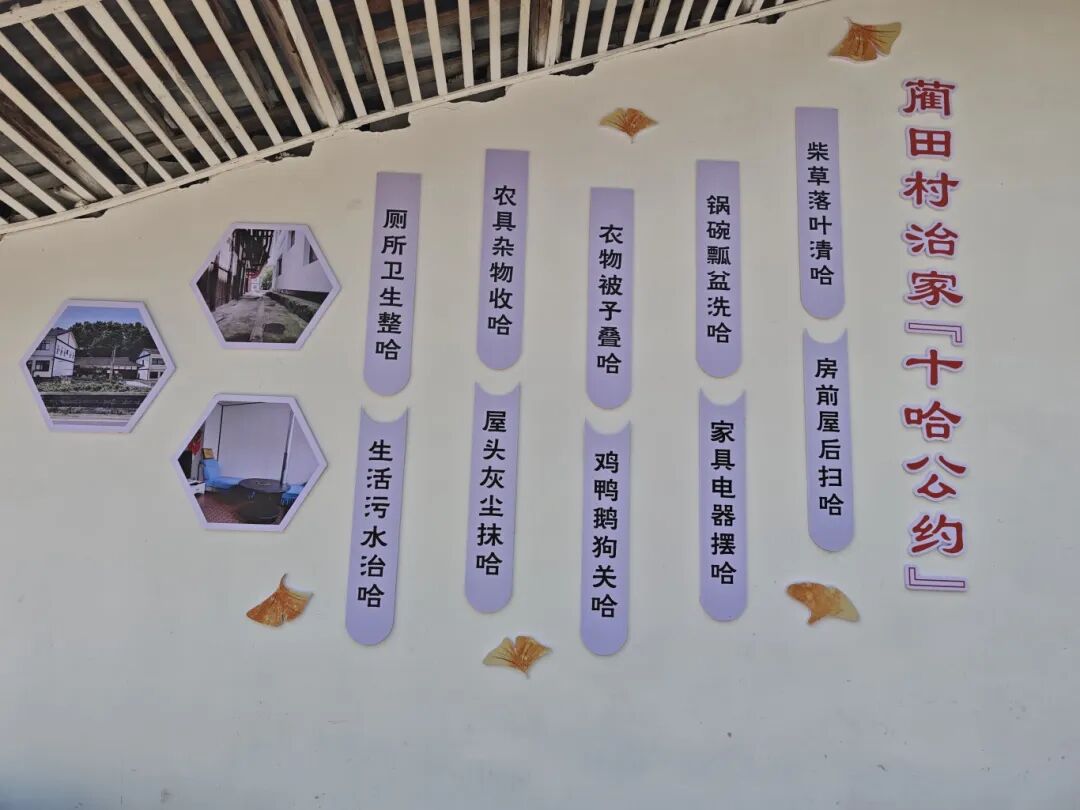 蔺田村治家『十哈公约』
柴草落叶清哈
房前屋后扫哈
锅碗瓢盆洗哈
家具电器摆哈
衣物被子叠哈
鸡鸭鹅狗关哈
农具杂物收哈
屋头灰尘抹哈
厕所卫生整哈
生活污水治哈